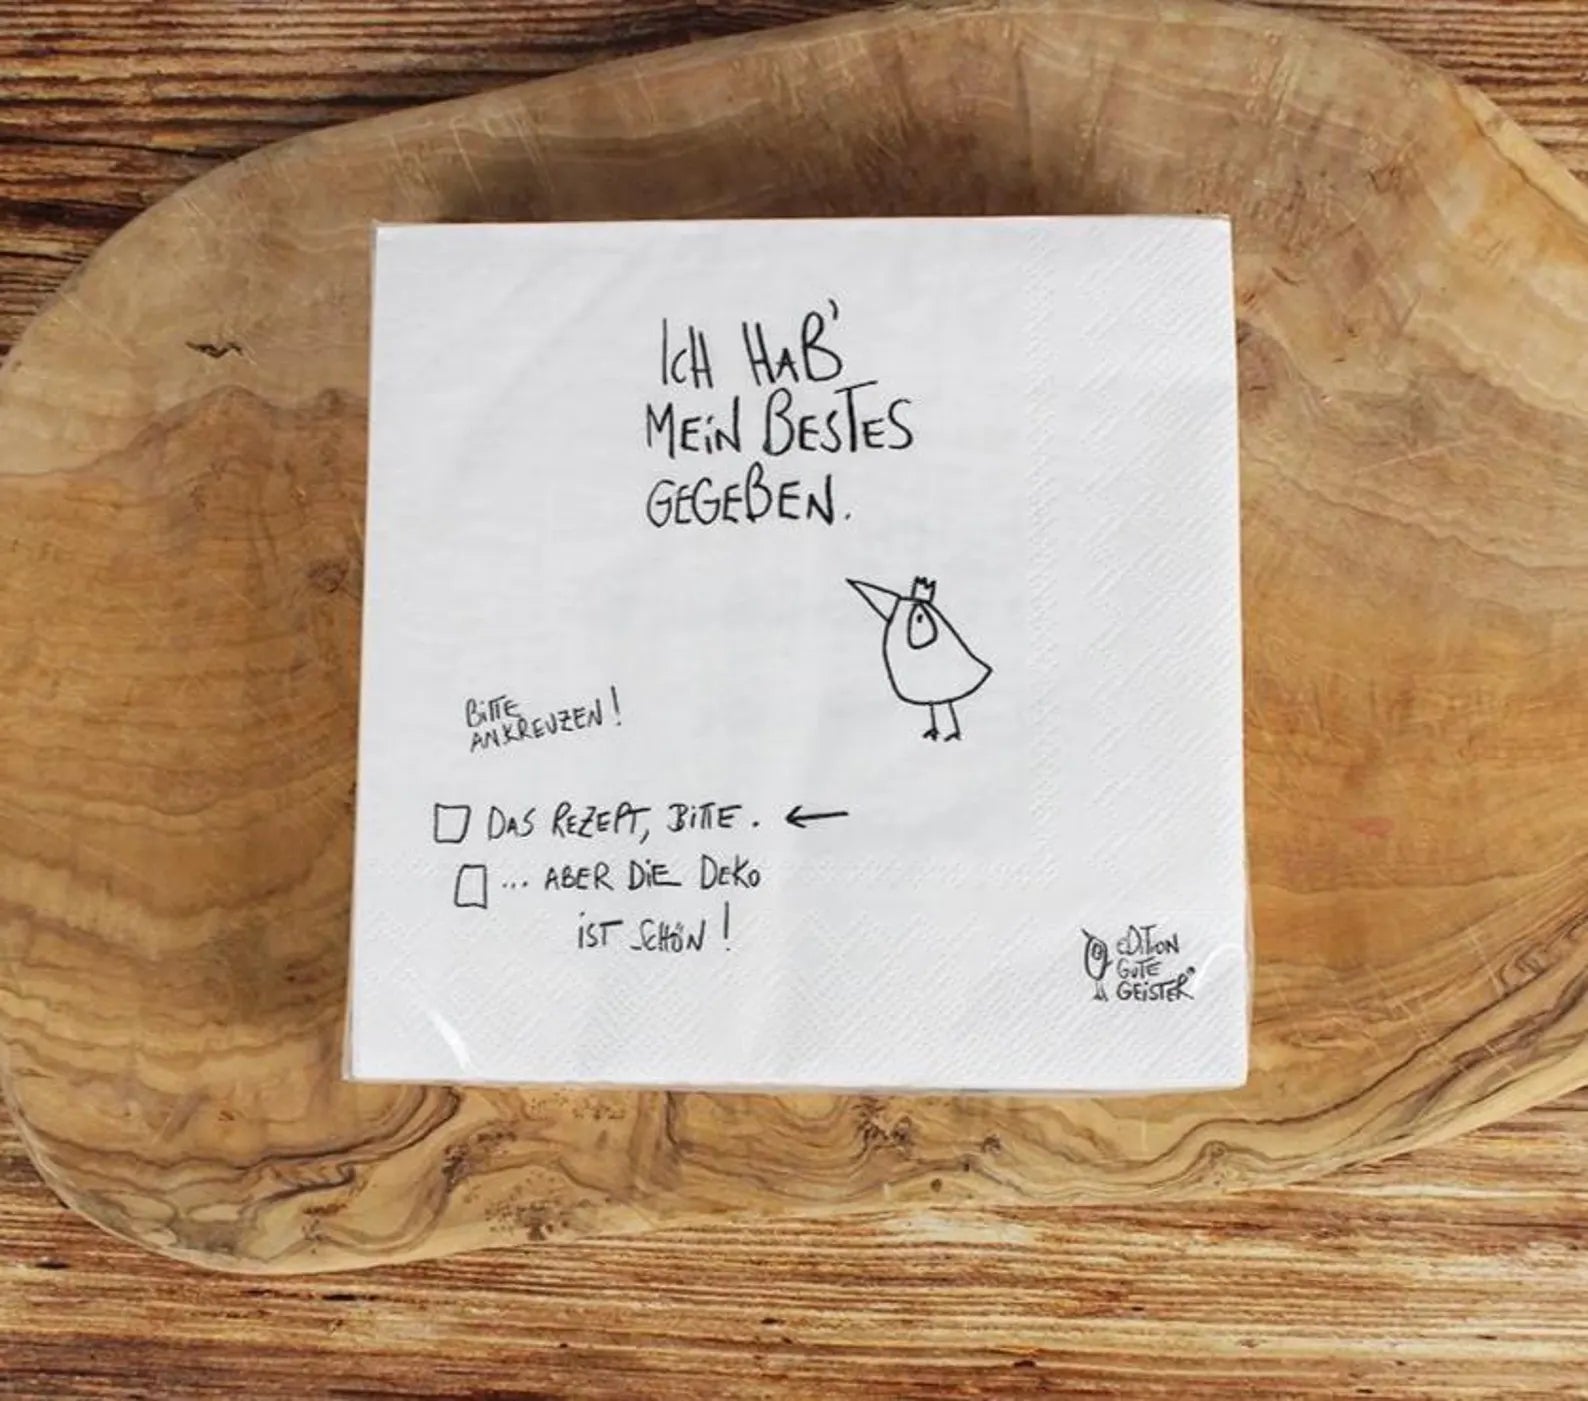 ICH HAB'
MEIN BESTES
GEGEBEN.
BITTE
ANKREUZEN!
DAS REZEPT, BITTE.
... ABER DIE DEKO
IST SCHÖN!
EDITION
GUTE
GEISTER®